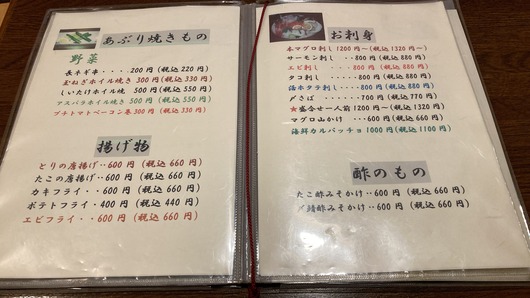 あぶり焼きもの
野菜
長ネギ串・・・・200円(税込220円)
玉ねぎホイル焼き 300円(税込330円)
しいたけホイル焼 500円(税込550円)
アスパラホイル焼き 500円(税込550円)
プチトマトベーコン巻 300円(税込330円)
揚げ物
とりの唐揚げ・・600円(税込660円)
たこの唐揚げ・・600円(税込660円)
カキフライ・・600円(税込660円)
ポテトフライ・・400円(税込440円)
エビフライ・・600円(税込660円)
お刺身
本マグロ刺し 1200円〜(税込1320円〜)
サーモン刺し・・800円(税込880円)
エビ刺し・・・800円(税込880円)
タコ刺し・・・800円(税込880円)
活ホタテ刺し・・800円(税込880円)
〆さば・・・・700円(税込770円)
★盛合せ一人前 1200円〜(税込1320円〜)
マグロ山かけ・・・600円(税込660円)
海鮮カルパッチョ 1000円(税込1100円)
酢のもの
たこ酢みそかけ・・600円(税込660円)
〆鯖酢みそかけ・・600円(税込660円)